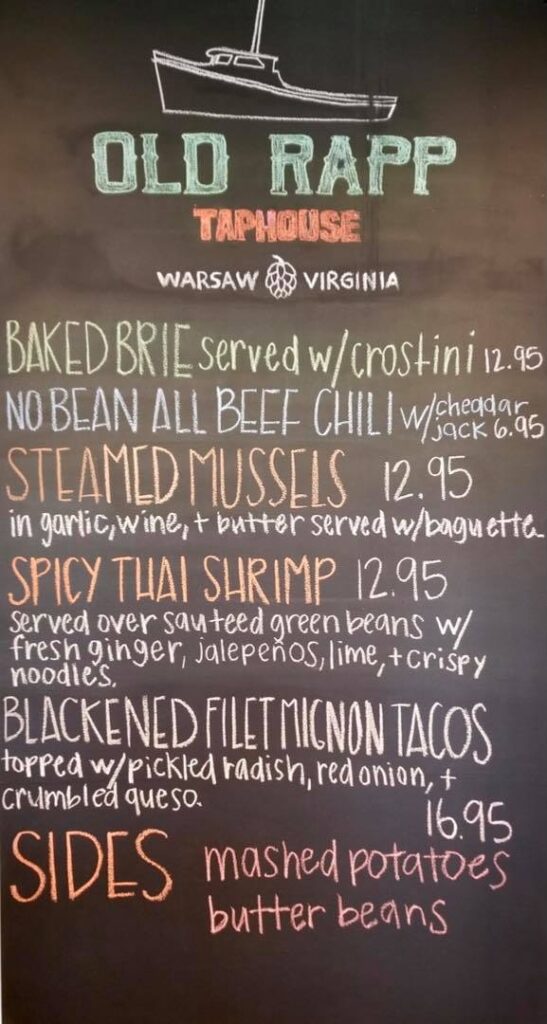 OLD RAPP
TAPHOUSE
WARSAW VIRGINIA
BAKED BRIE served w/crostini 12.95
NO BEAN ALL BEEF CHILI w/cheddar jack 6.95
STEAMED MUSSELS 12.95
in garlic, wine, + butter served w/baguette
SPICY THAI SHRIMP 12.95
served over sauteed green beans w/
fresh ginger, jalepeños, lime, + crispy
noodles.
BLACKENED FILET MIGNON TACOS
topped w/pickled radish, red onion, +
crumbled queso.
16.95
SIDES mashed potatoes
butter beans